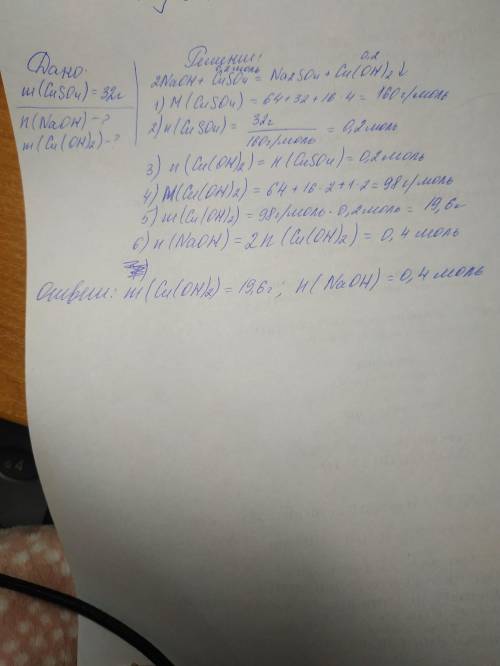 Дано:
m(CuSO4) = 32г
n(NaOH) - ?
m(Cu(OH)2) - ?
Решение:
0,2 моль 0,2
2NaOH + CuSO4 = Na2SO4 + Cu(OH)2↓
1) M(CuSO4) = 64+32+16·4 = 160 г/моль
2) n(CuSO4) = 32г / 160г/моль = 0,2 моль
3) n(Cu(OH)2) = n(CuSO4) = 0,2 моль
4) M(Cu(OH)2) = 64 + 16·2 + 1·2 = 98 г/моль
5) m(Cu(OH)2) = 98г/моль · 0,2 моль = 19,6г
6) n(NaOH) = 2n(Cu(OH)2) = 0,4 моль
Ответ: m(Cu(OH)2) = 19,6г; n(NaOH) = 0,4 моль